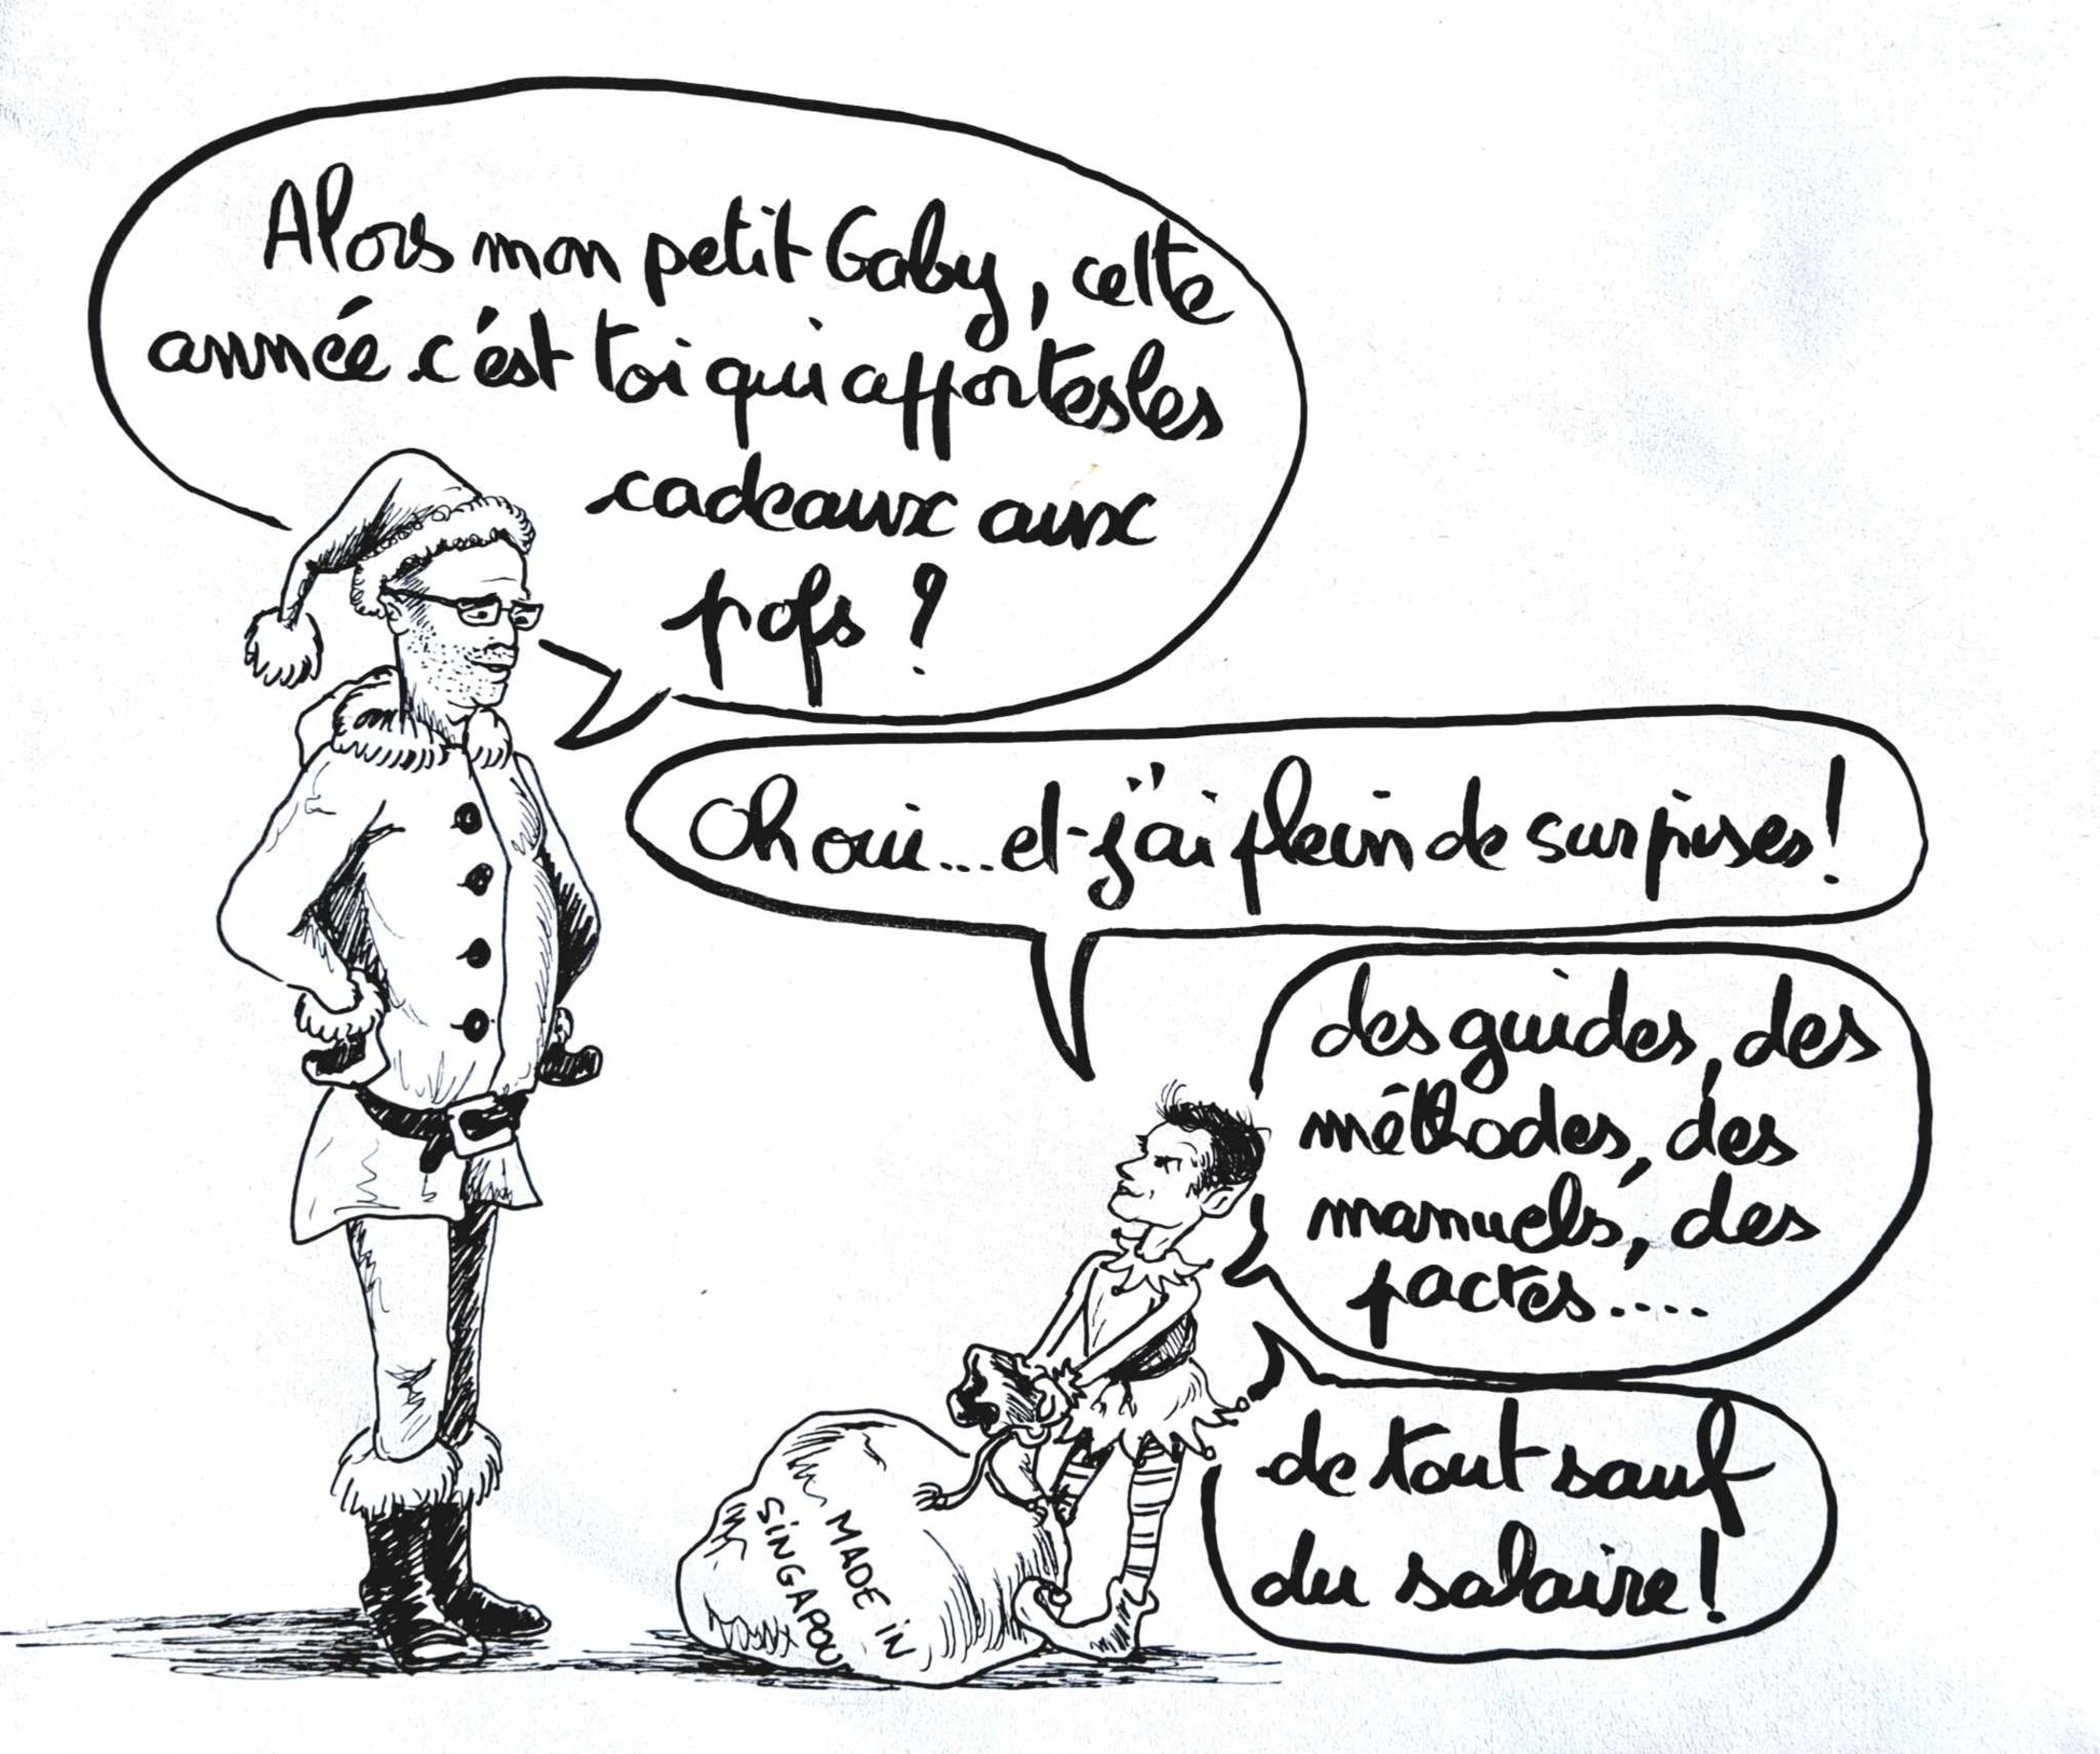 Alors mon petit Gaby, cette
année c'est toi qui apportes les
cadeaux aux
profs ?
Oh oui... et j'ai plein de surprises !
des guides, des
méthodes, des
manuels, des
pactes.....
de tout sauf
du salaire !
MADE IN
SINGAPOUR